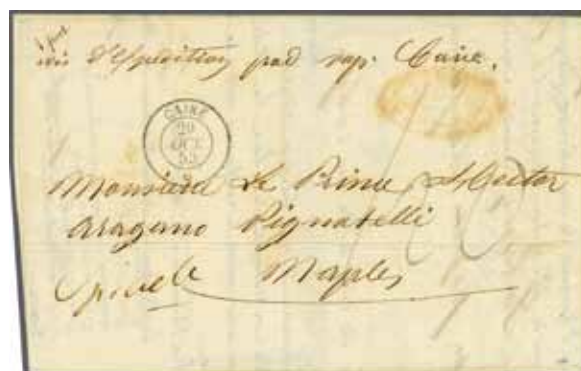 d'Expedition pad vap: Caire.
CAIRE
20
OCT
53
Monsieur Le Prince Hector
Aragano Pignatelli
Naples